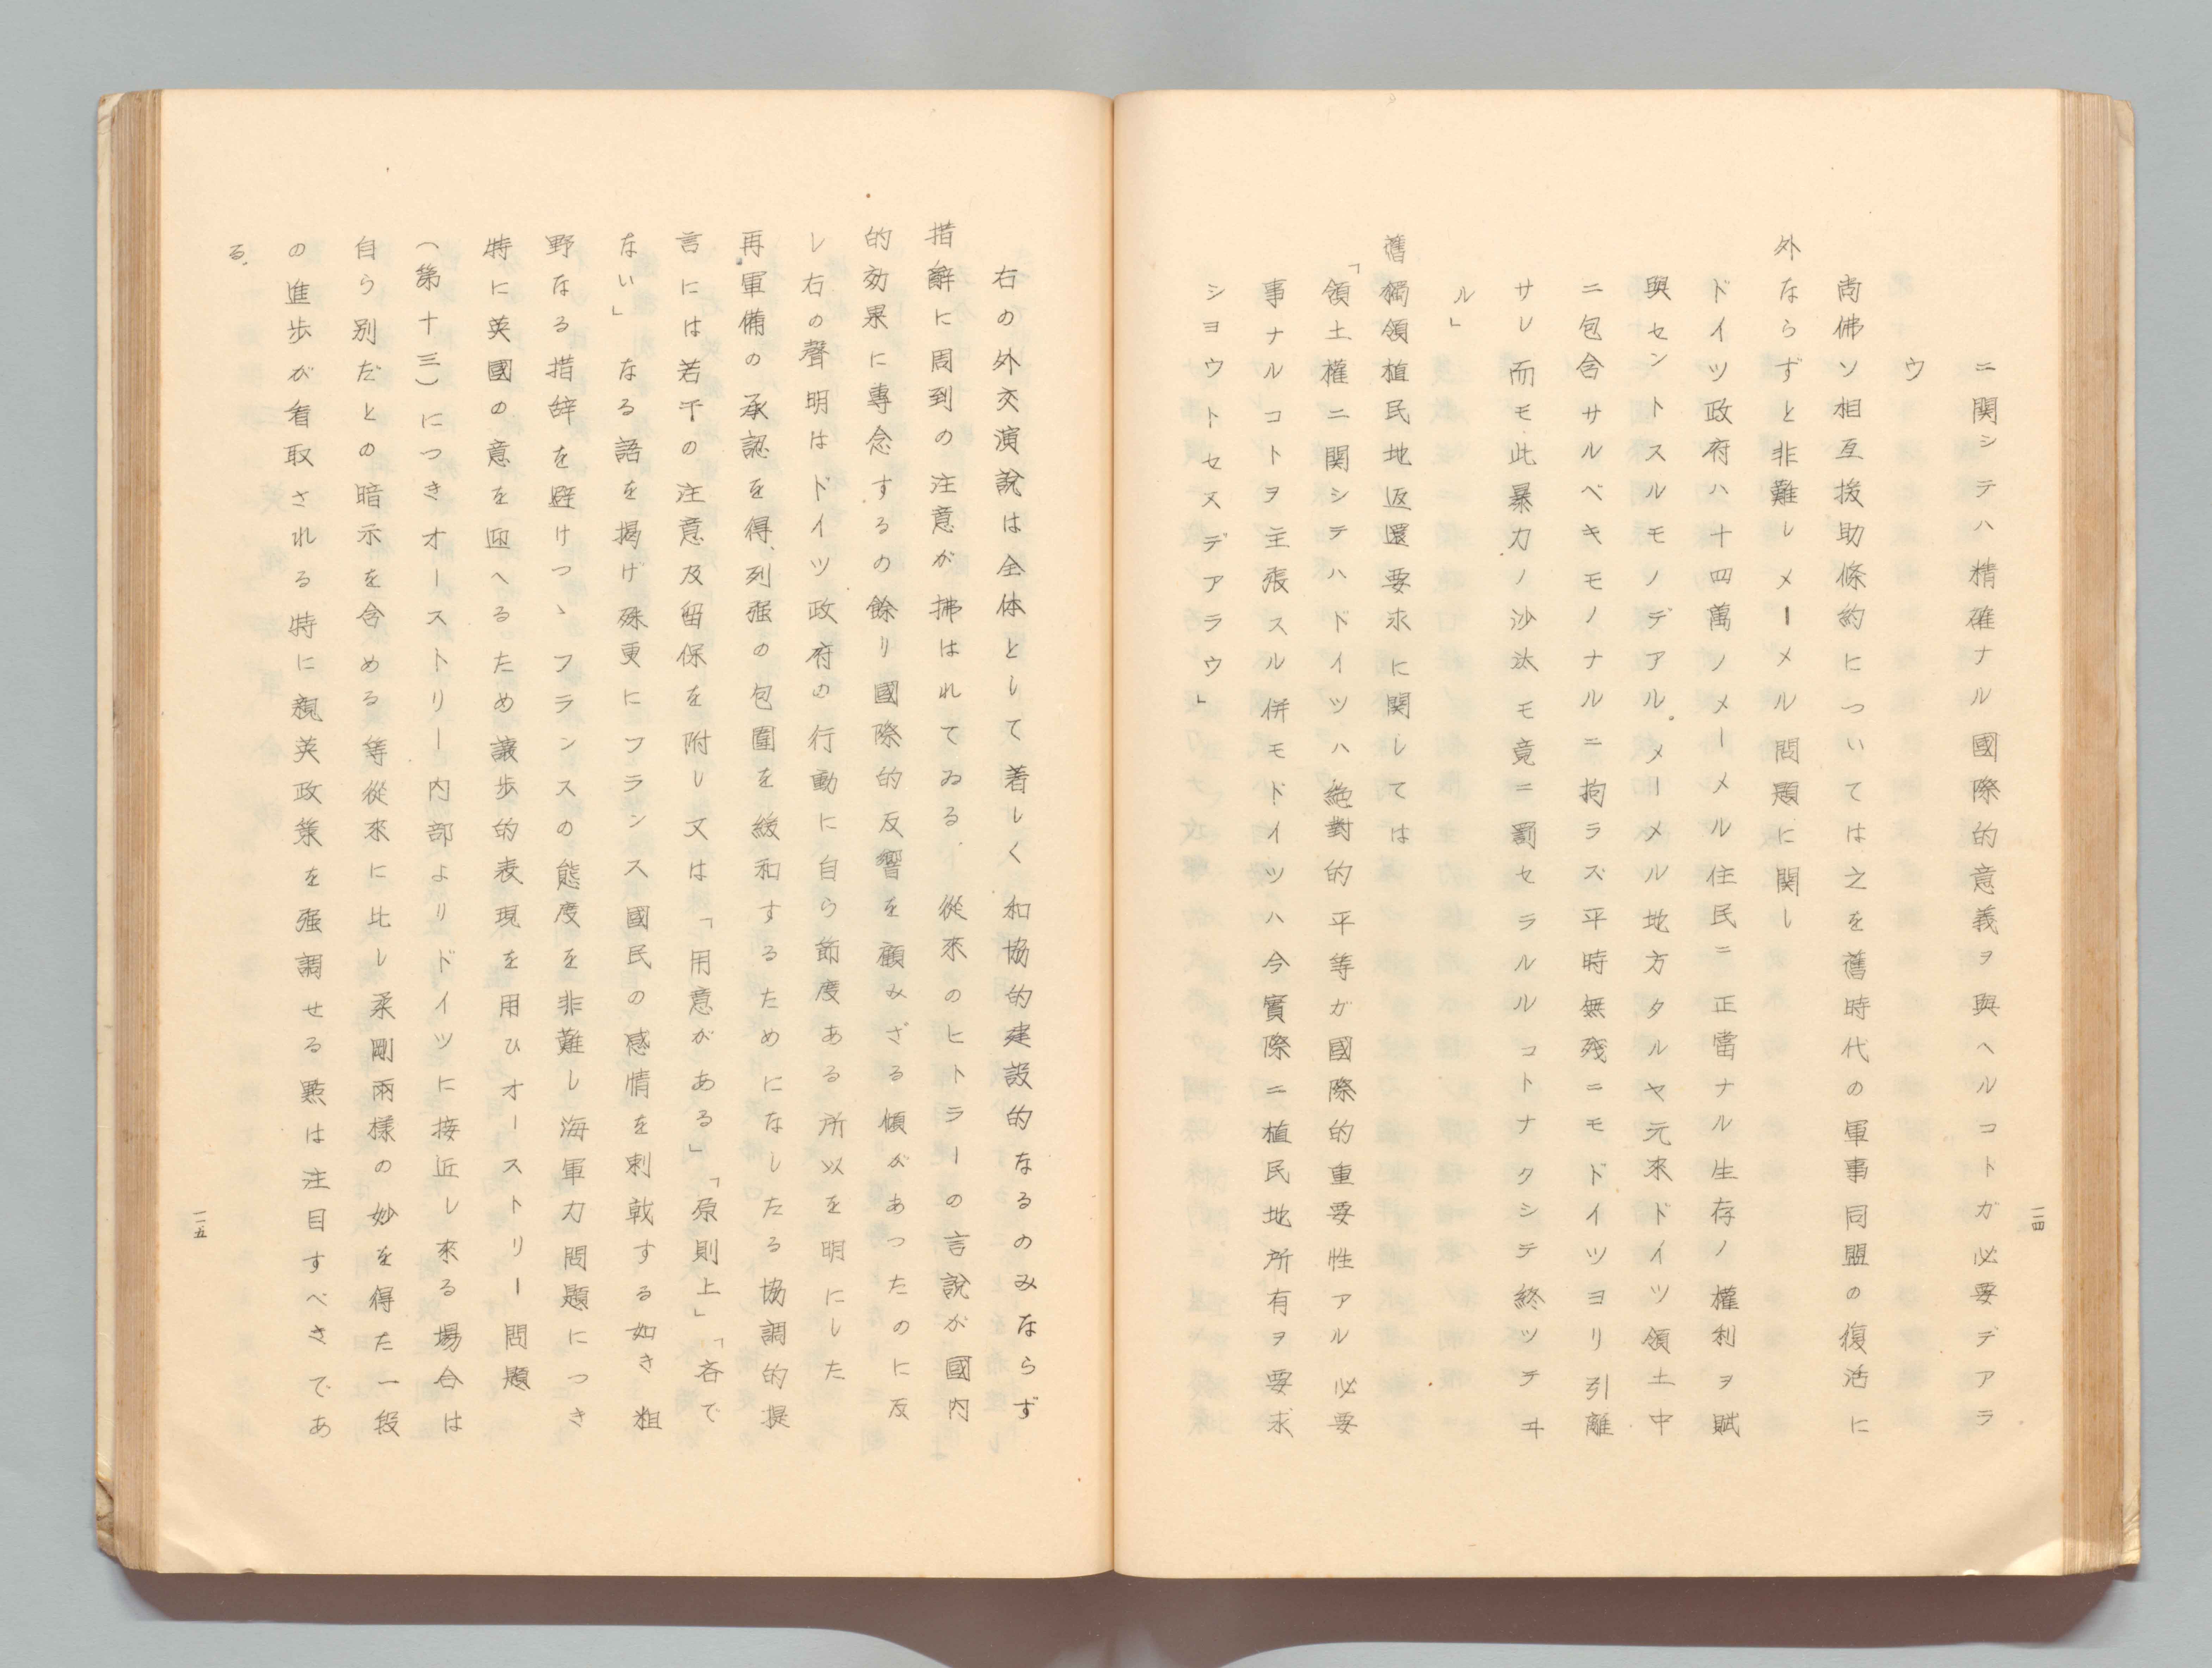 ニ関シテハ精確ナル國際的意義ヲ與ヘルコトガ必要デアラ
ウ
尚佛ソ相互援助條約については之を舊時代の軍事同盟の復活に
外ならずと非難しメーメル問題に関し
ドイツ政府ハ十四萬ノメーメル住民ニ正當ナル生存ノ權利ヲ賦
與セントスルモノデアル。メーメル地方タルヤ元來ドイツ領土中
ニ包含サルベキモノナルニ拘ラズ平時無残ニモドイツヨリ引離
サレ而モ此暴力ノ沙汰モ竟ニ罰セラルルコトナクシテ終ツテヰ
ル」
舊獨領植民地返還要求に関しては
「領土權ニ関シテハドイツハ絶對的平等ガ國際的重要性アル必要
事ナルコトヲ主張スル併モドイツハ今實際ニ植民地所有ヲ要求
シヨウトセヌデアラウ」
一一四
右の外交演説は全体として著しく和協的建設的なるのみならず
措辭に周到の注意が拂はれてゐる。從來のヒトラーの言説が國内
的効果に專念するの餘り國際的反響を顧みざる傾があつたのに反
し右の聲明はドイツ政府の行動に自ら節度ある所以を明にした
再軍備の承認を得、列强の包圍を緩和するためになしたる協調的提
言には若干の注意及留保を附し又は「用意がある」「原則上」「吝で
ない」なる語を掲げ殊更にフランス國民の感情を刺戟する如き粗
野なる措辞を避けつゝフランスの態度を非難し海軍力問題につき
特に英國の意を迎へるため讓歩的表現を用ひオーストリー問題
(第十三)につきオーストリー内部よりドイツに接近し來る場合は
自ら別だとの暗示を含める等從來に比し柔剛兩樣の妙を得た一段
の進歩が看取される特に親英政策を强調せる點は注目すべきであ
る。
一一五